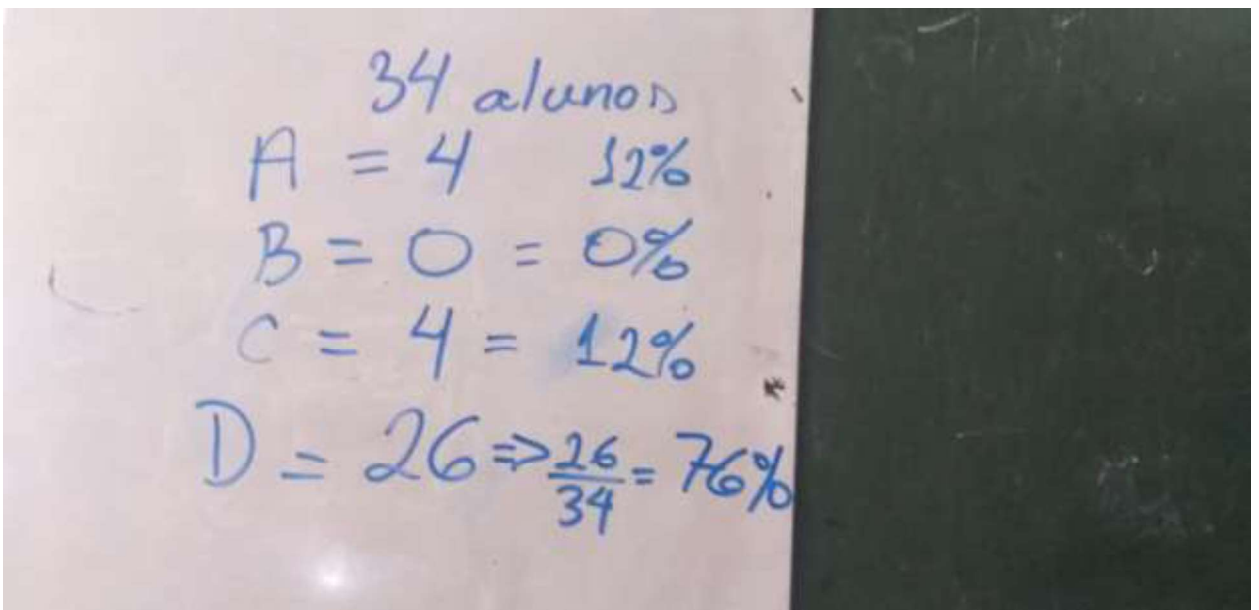 34 alunos
A = 4 12%
B = 0 = 0%
C = 4 = 12%
D = 26 => 26/34 = 76%